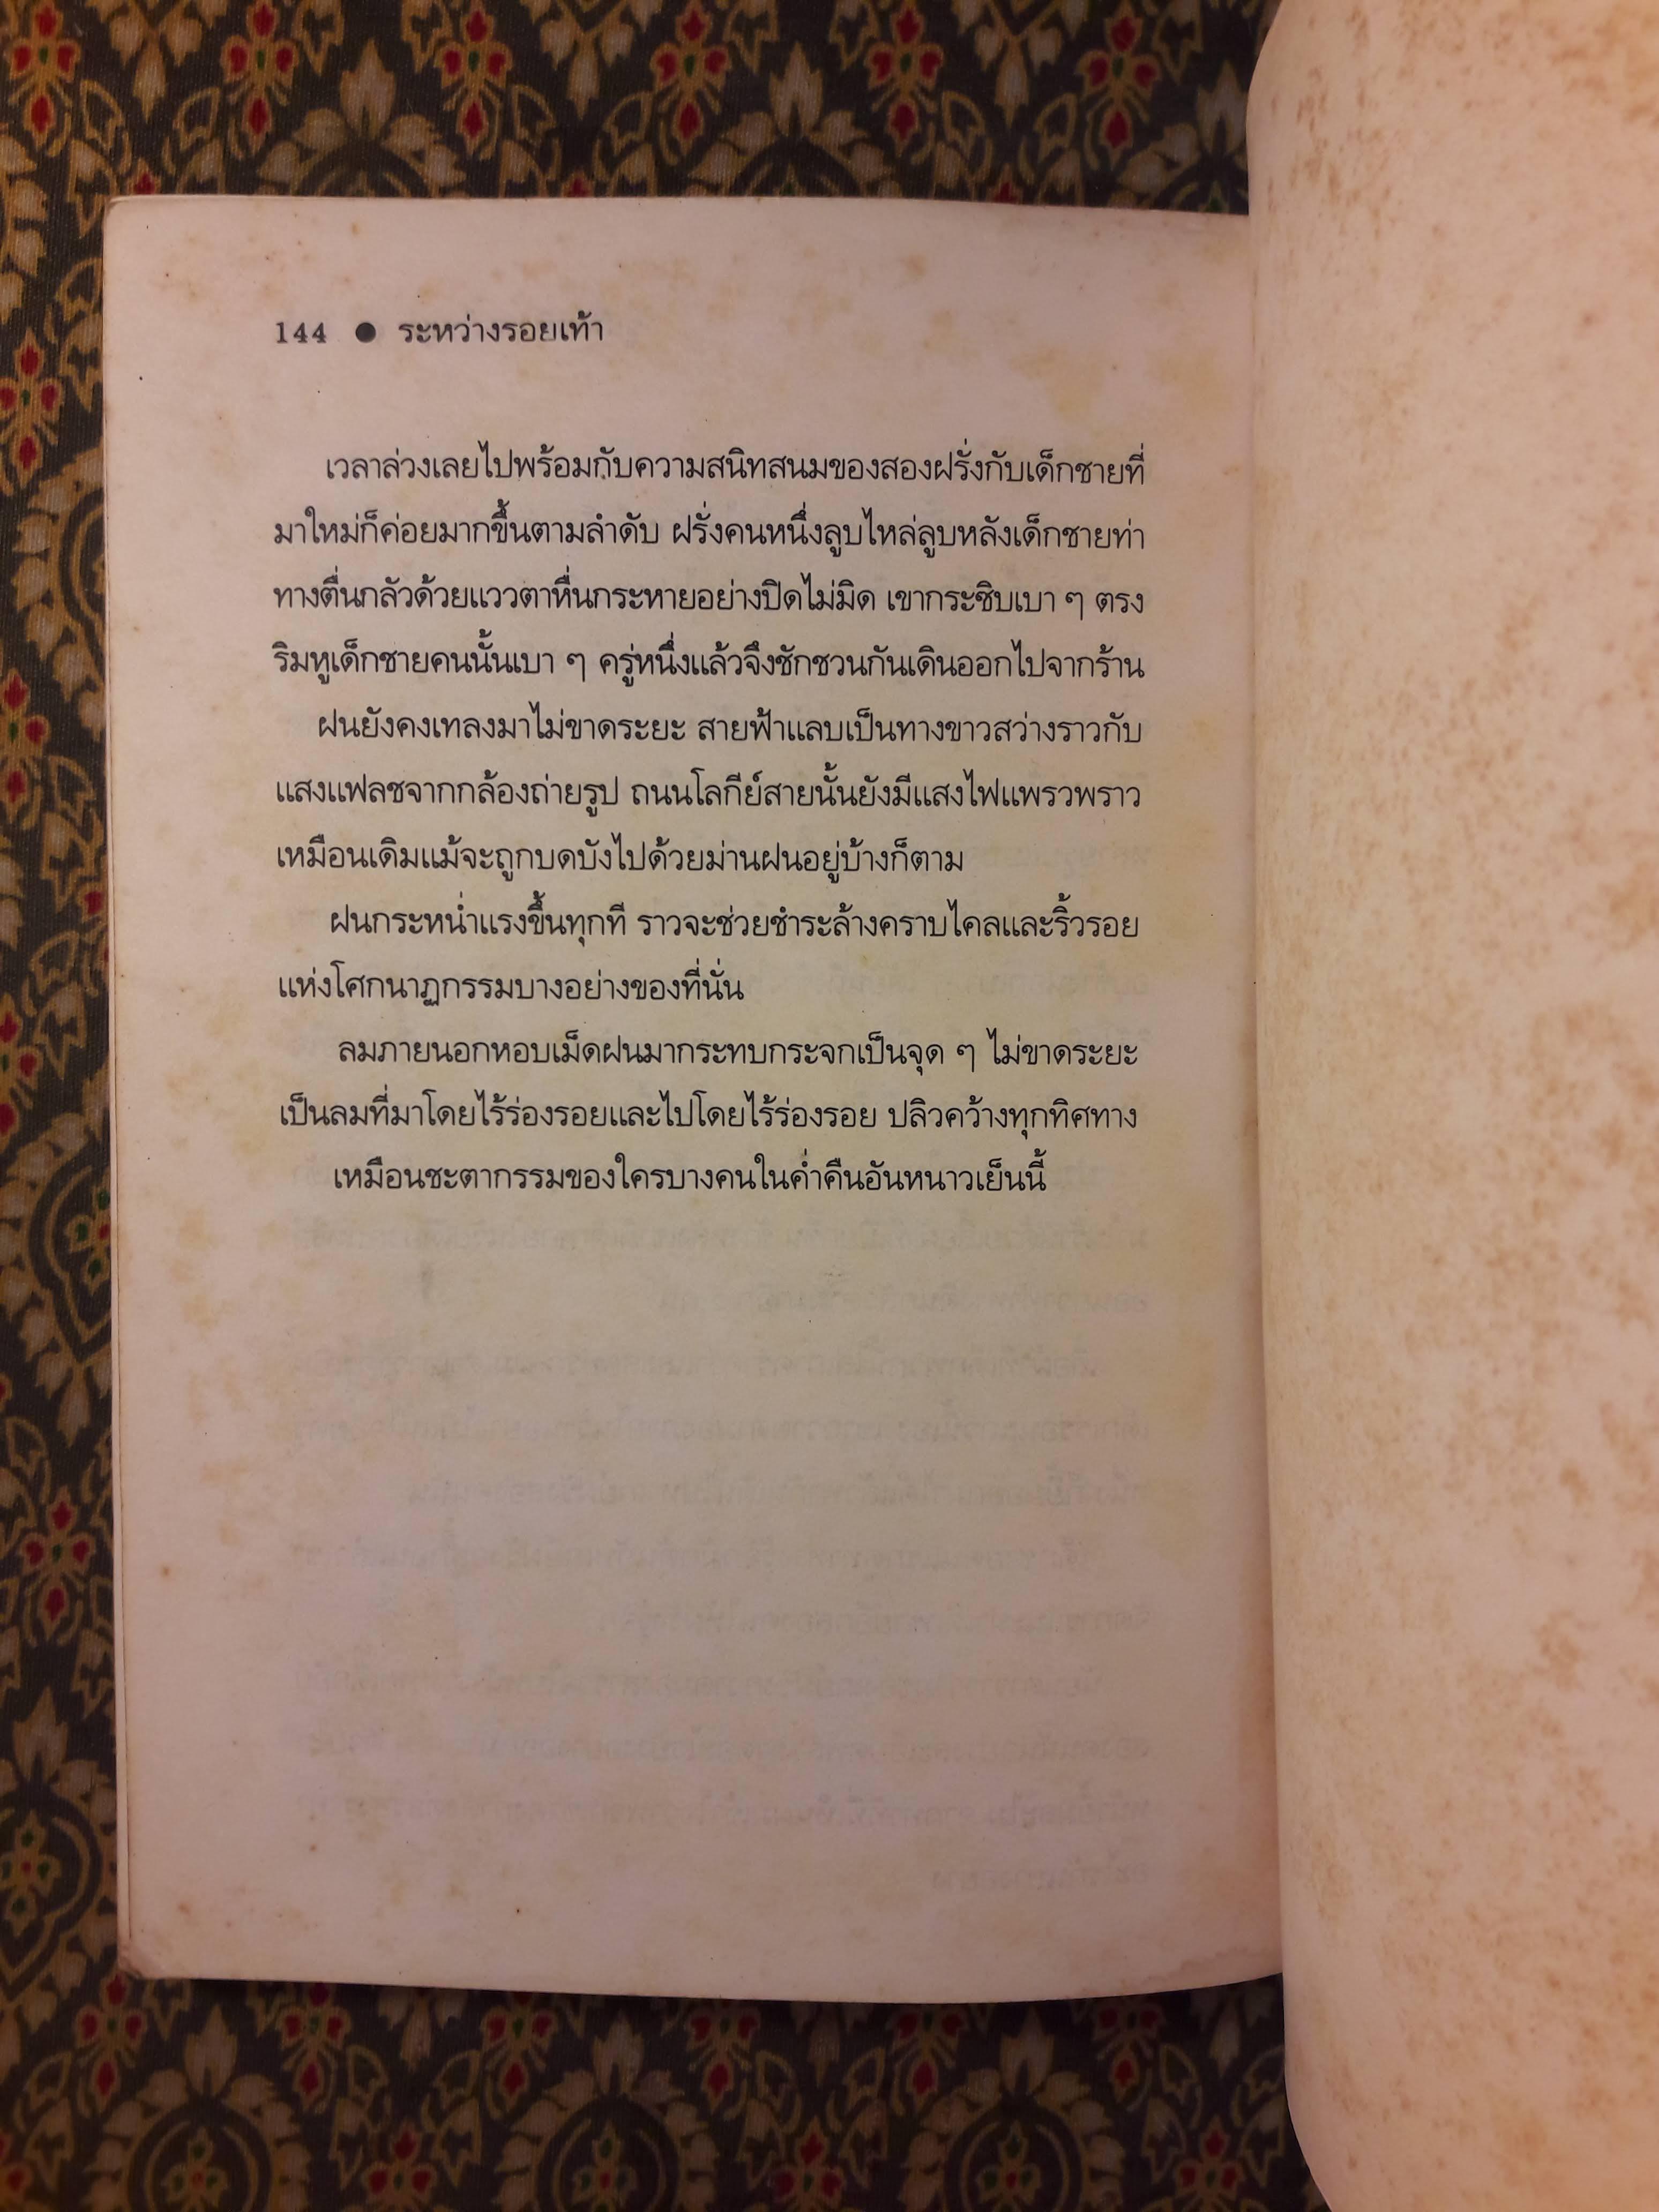 144 ● ระหว่างรอยเท้า
เวลาล่วงเลยไปพร้อมกับความสนิทสนมของสองฝรั่งกับเด็กชายที่
มาใหม่ก็ค่อยมากขึ้นตามลำดับ ฝรั่งคนหนึ่งลูบไหล่ลูบหลังเด็กชายท่า
ทางตื่นกลัวด้วยแววตาหื่นกระหายอย่างปิดไม่มิด เขากระซิบเบา ๆ ตรง
ริมหูเด็กชายคนนั้นเบา ๆ ครู่หนึ่งแล้วจึงชักชวนกันเดินออกไปจากร้าน
ฝนยังคงเทลงมาไม่ขาดระยะ สายฟ้าแลบเป็นทางขาวสว่างราวกับ
แสงแฟลชจากกล้องถ่ายรูป ถนนโลกีย์สายนั้นยังมีแสงไฟแพรวพราว
เหมือนเดิมแม้จะถูกบดบังไปด้วยม่านฝนอยู่บ้างก็ตาม
ฝนกระหน่ำแรงขึ้นทุกที ราวจะช่วยชำระล้างคราบไคลและริ้วรอย
แห่งโศกนาฏกรรมบางอย่างของที่นั่น
ลมภายนอกหอบเม็ดฝนมากระทบกระจกเป็นจุด ๆ ไม่ขาดระยะ
เป็นลมที่มาโดยไร้ร่องรอยและไปโดยไร้ร่องรอย ปลิวคว้างทุกทิศทาง
เหมือนชะตากรรมของใครบางคนในค่ำคืนอันหนาวเย็นนี้